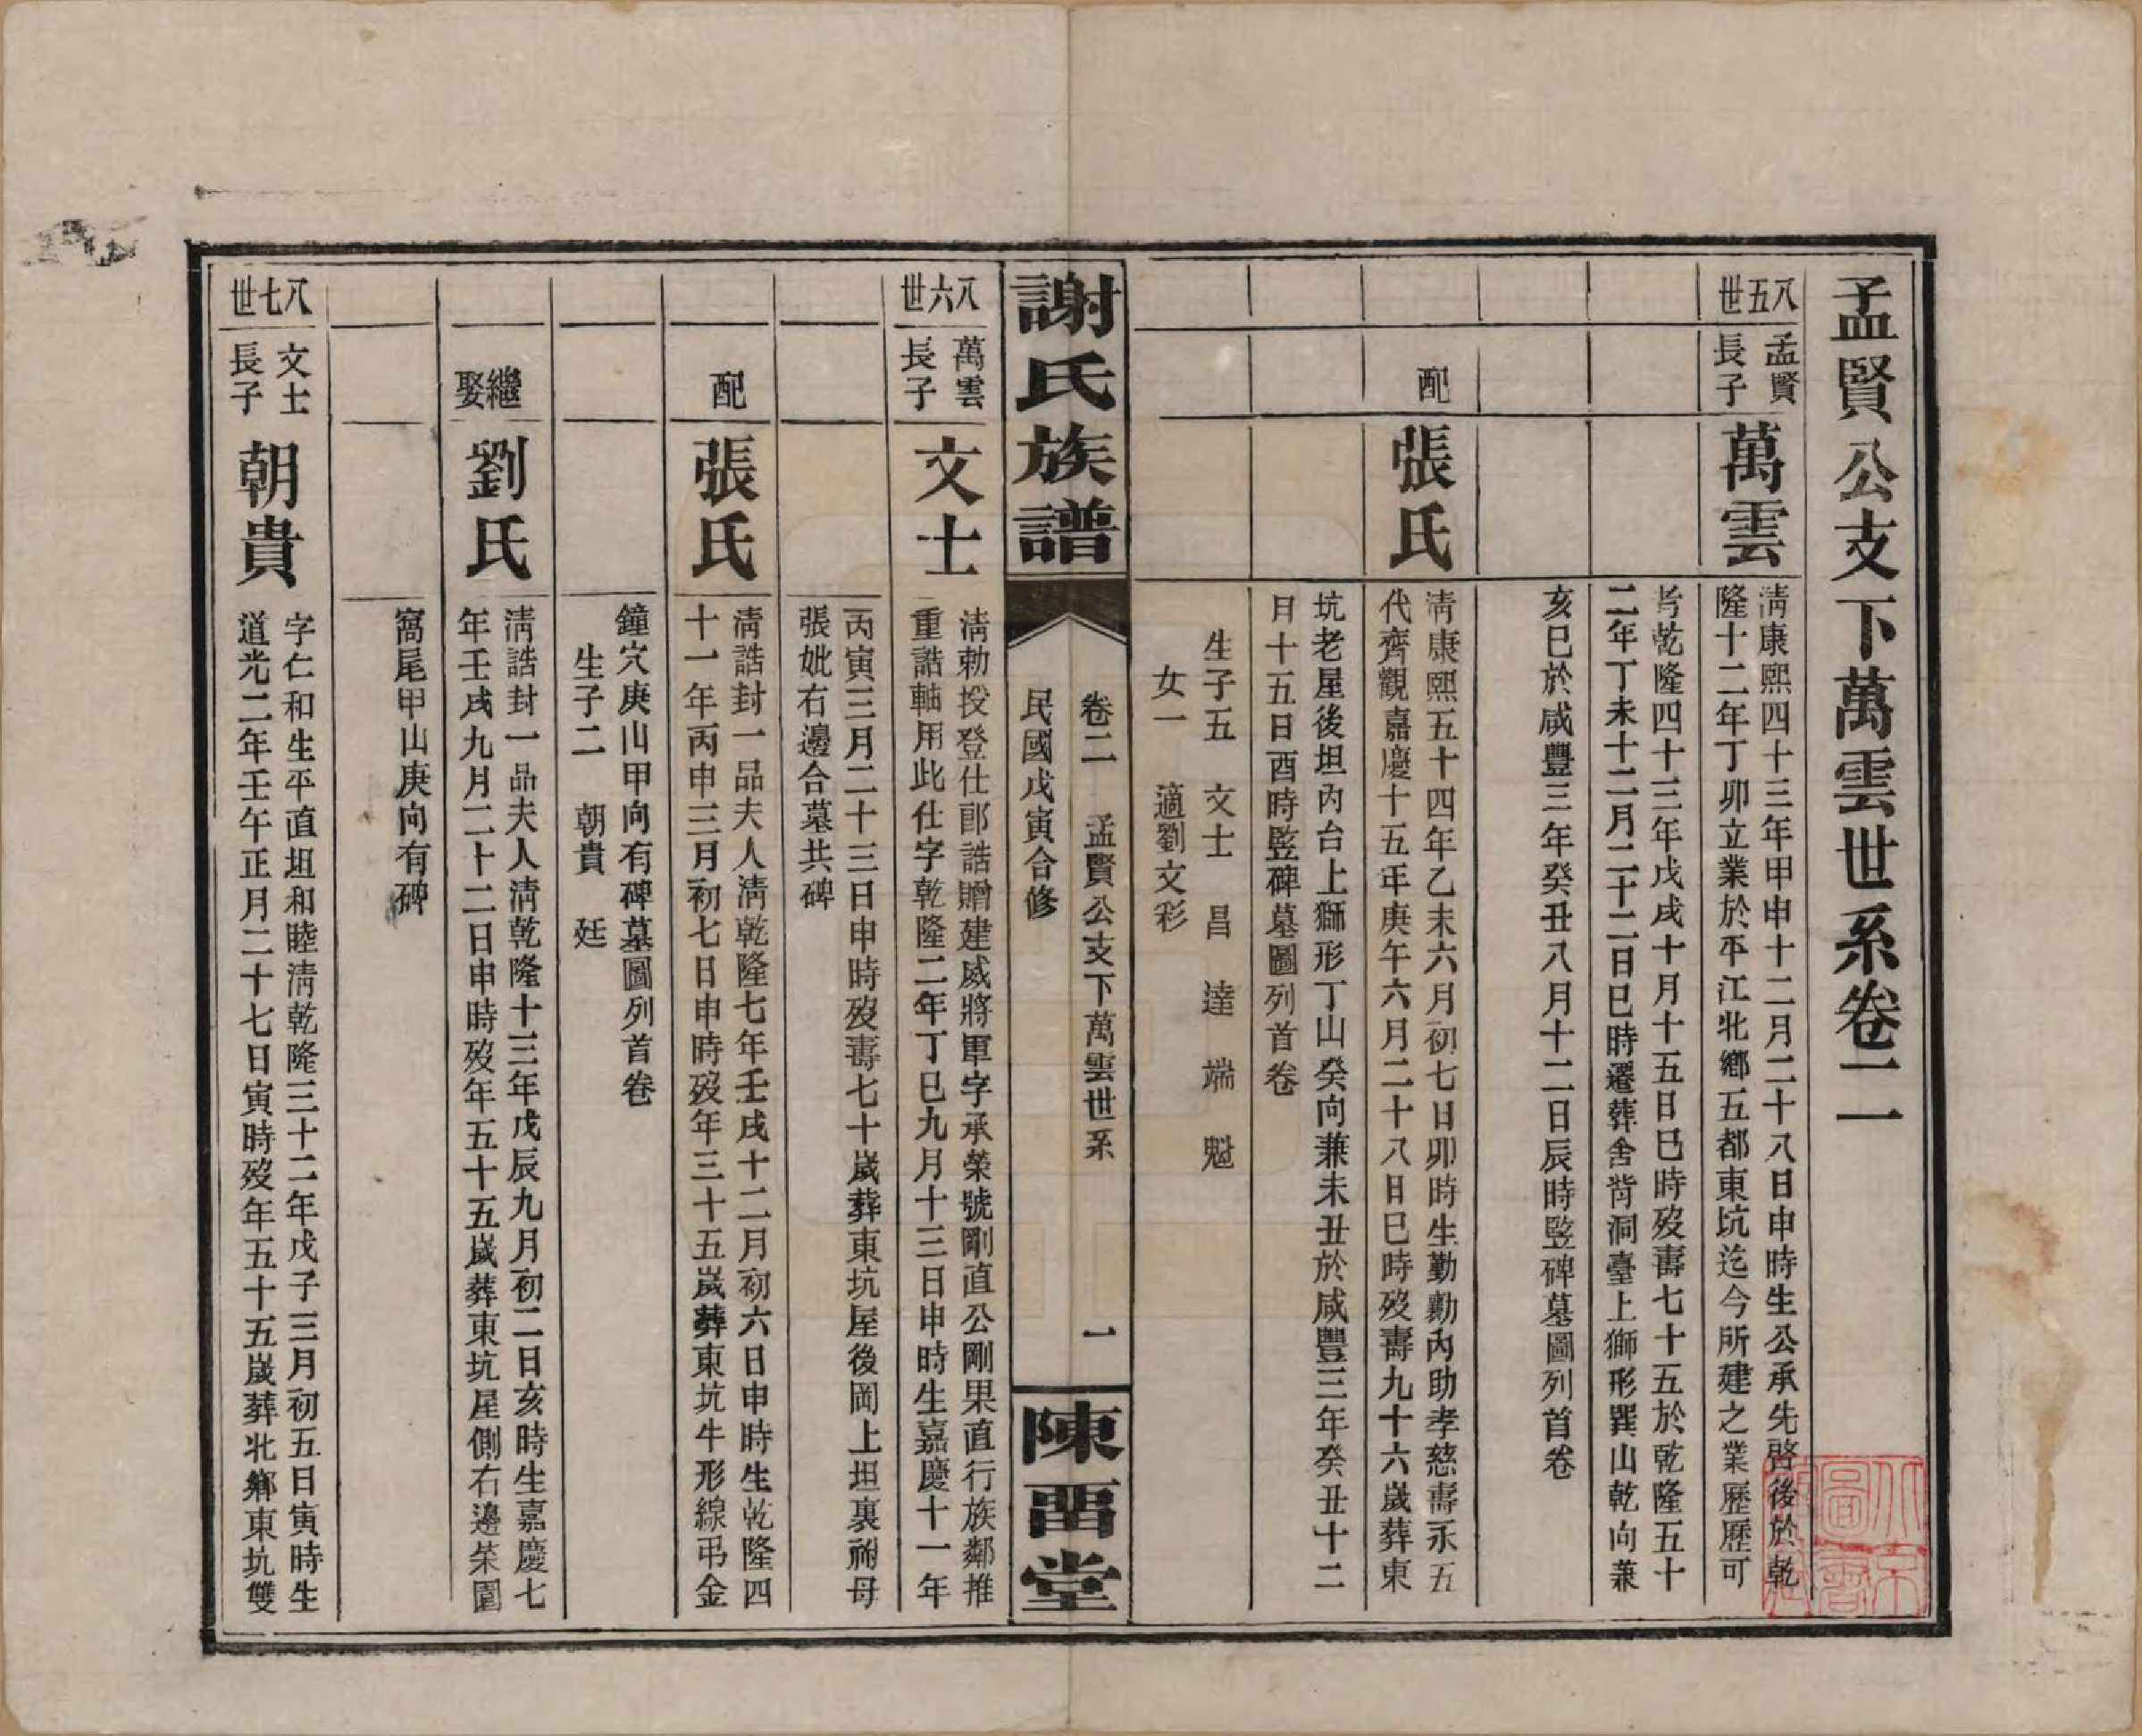 孟賢公支下萬雲世系卷二
八五世
孟賢
長子
萬雲
清康熙四十三年甲申十二月二十八日申時生公承先啓後於乾
隆十二年丁卯立業於平江北鄉五都東坑迄今所建之業歷歷可
考乾隆四十三年戊戌十月十五日巳時歿壽七十五於乾隆五十
二年丁未十二月二十二日巳時遷葬舍背洞臺上獅形巽山乾向兼
亥巳於咸豐三年癸丑八月十二日辰時竪碑墓圖列首卷
配
張氏
清康熙五十四年乙未六月初七日卯時生勤勷內助孝慈壽永五
代齊觀嘉慶十五年庚午六月二十八日巳時歿壽九十六歲葬東
坑老屋後坦內台上獅形丁山癸向兼未丑於咸豐三年癸丑十二
月十五日酉時竪碑墓圖列首卷
生子五 文士 昌 達 端 魁
女一 適劉文彩
謝氏族譜
卷二 孟賢公支下萬雲世系 一
民國戊寅合修
陳畱堂
八六世
萬雲
長子
文士
清勅授登仕郎誥贈建威將軍字承榮號剛直公剛果直行族鄰推
重誥軸用此仕字乾隆二年丁巳九月十三日申時生嘉慶十一年
丙寅三月二十三日申時歿壽七十歲葬東坑屋後岡上坦裏祔母
張妣右邊合墓共碑
配
張氏
清誥封一品夫人清乾隆七年壬戌十二月初六日申時生乾隆四
十一年丙申三月初七日申時歿年三十五歲葬東坑牛形線弔金
鐘穴庚山甲向有碑墓圖列首卷
生子二 朝貴 廷
繼娶
劉氏
清誥封一品夫人清乾隆十三年戊辰九月初二日亥時生嘉慶七
年壬戌九月二十二日申時歿年五十五歲葬東坑屋側右邊茶園
窩尾甲山庚向有碑
八七世
文士
長子
朝貴
字仁和生平直坦和睦清乾隆三十二年戊子三月初五日寅時生
道光二年壬午正月二十七日寅時歿年五十五歲葬北鄉東坑雙